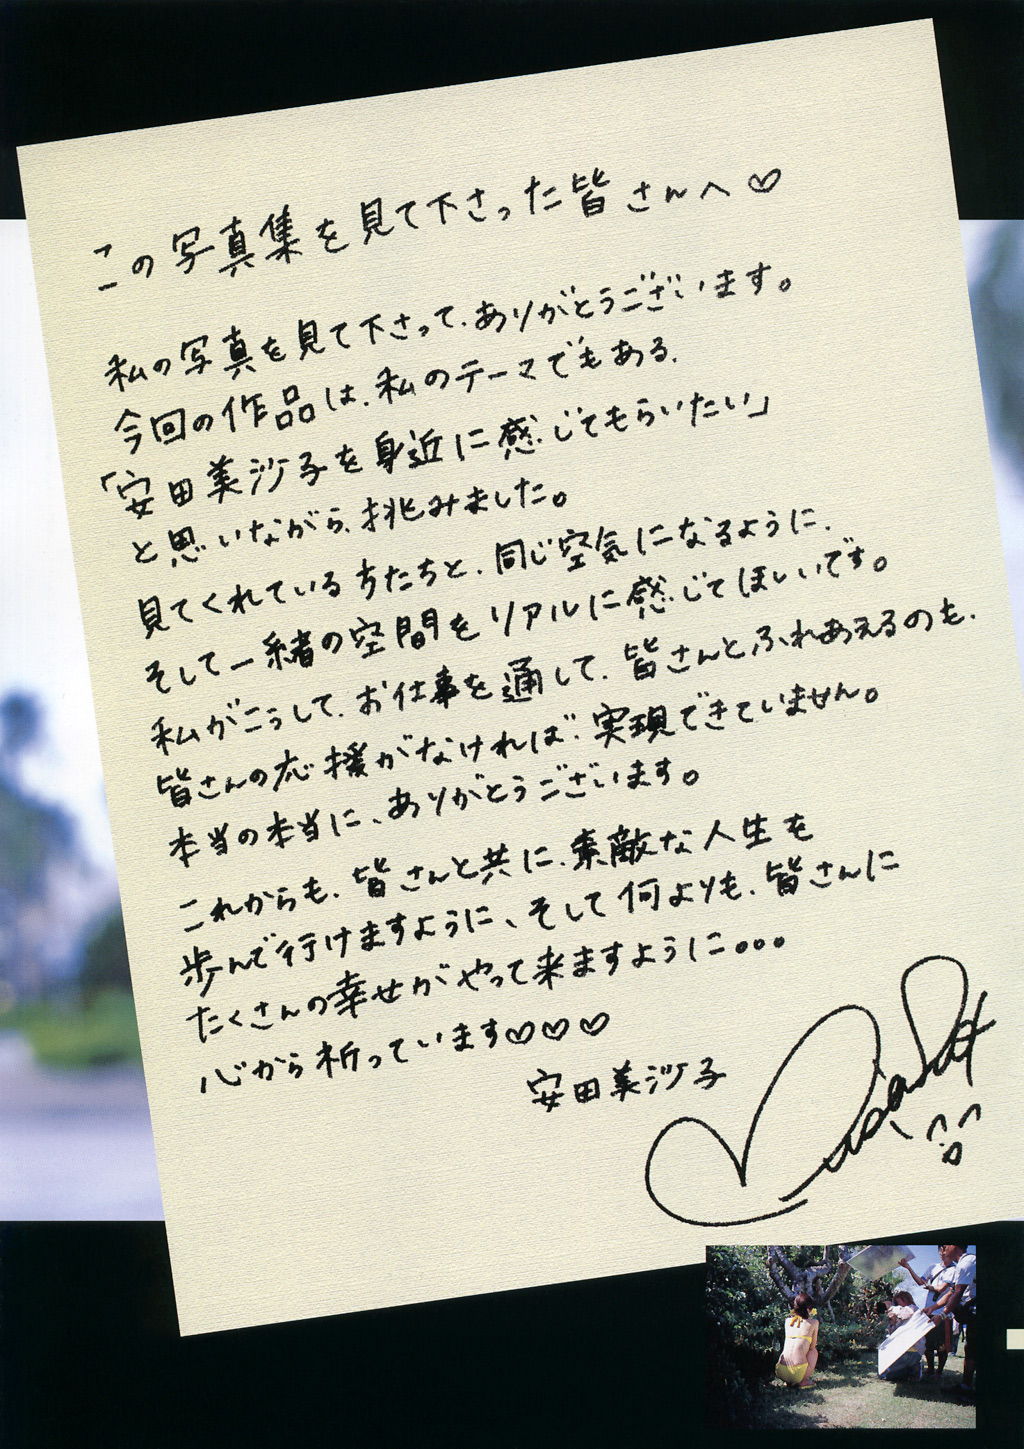 この写真集を見て下さった皆さんへ♡
私の写真を見て下さって、ありがとうございます。
今回の作品は、私のテーマでもある、
「安田美沙子を身近に感じてもらいたい」
と思いながら、挑みました。
見てくれている方たちと、同じ空気になるように、
そして一緒の空間をリアルに感じてほしいです。
私がこうして、お仕事を通して、皆さんとふれあえるのも、
皆さんの応援がなければ、実現できていません。
本当の本当に、ありがとうございます。
これからも、皆さんと共に、素敵な人生を
歩んで行けますように、そして何よりも、皆さんに
たくさんの幸せがやって来ますように。。。
心から祈っています♡♡♡
安田美沙子